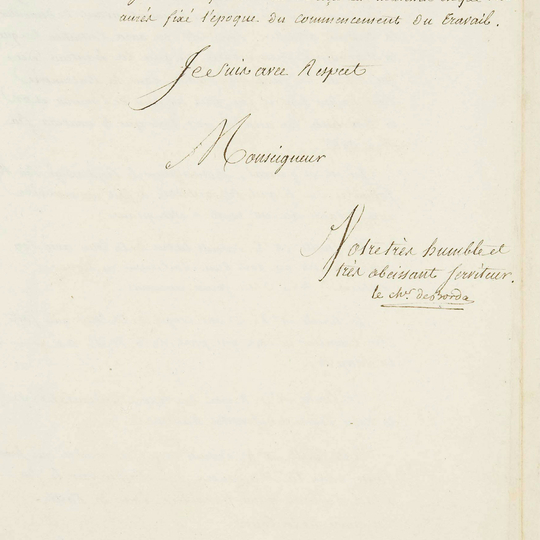 aurés fixé l'epoque du commencement du travail.
Je suis avec Respect
Monseigneur
Votre très humble et
très obeissant serviteur.
le ch.er de Borda